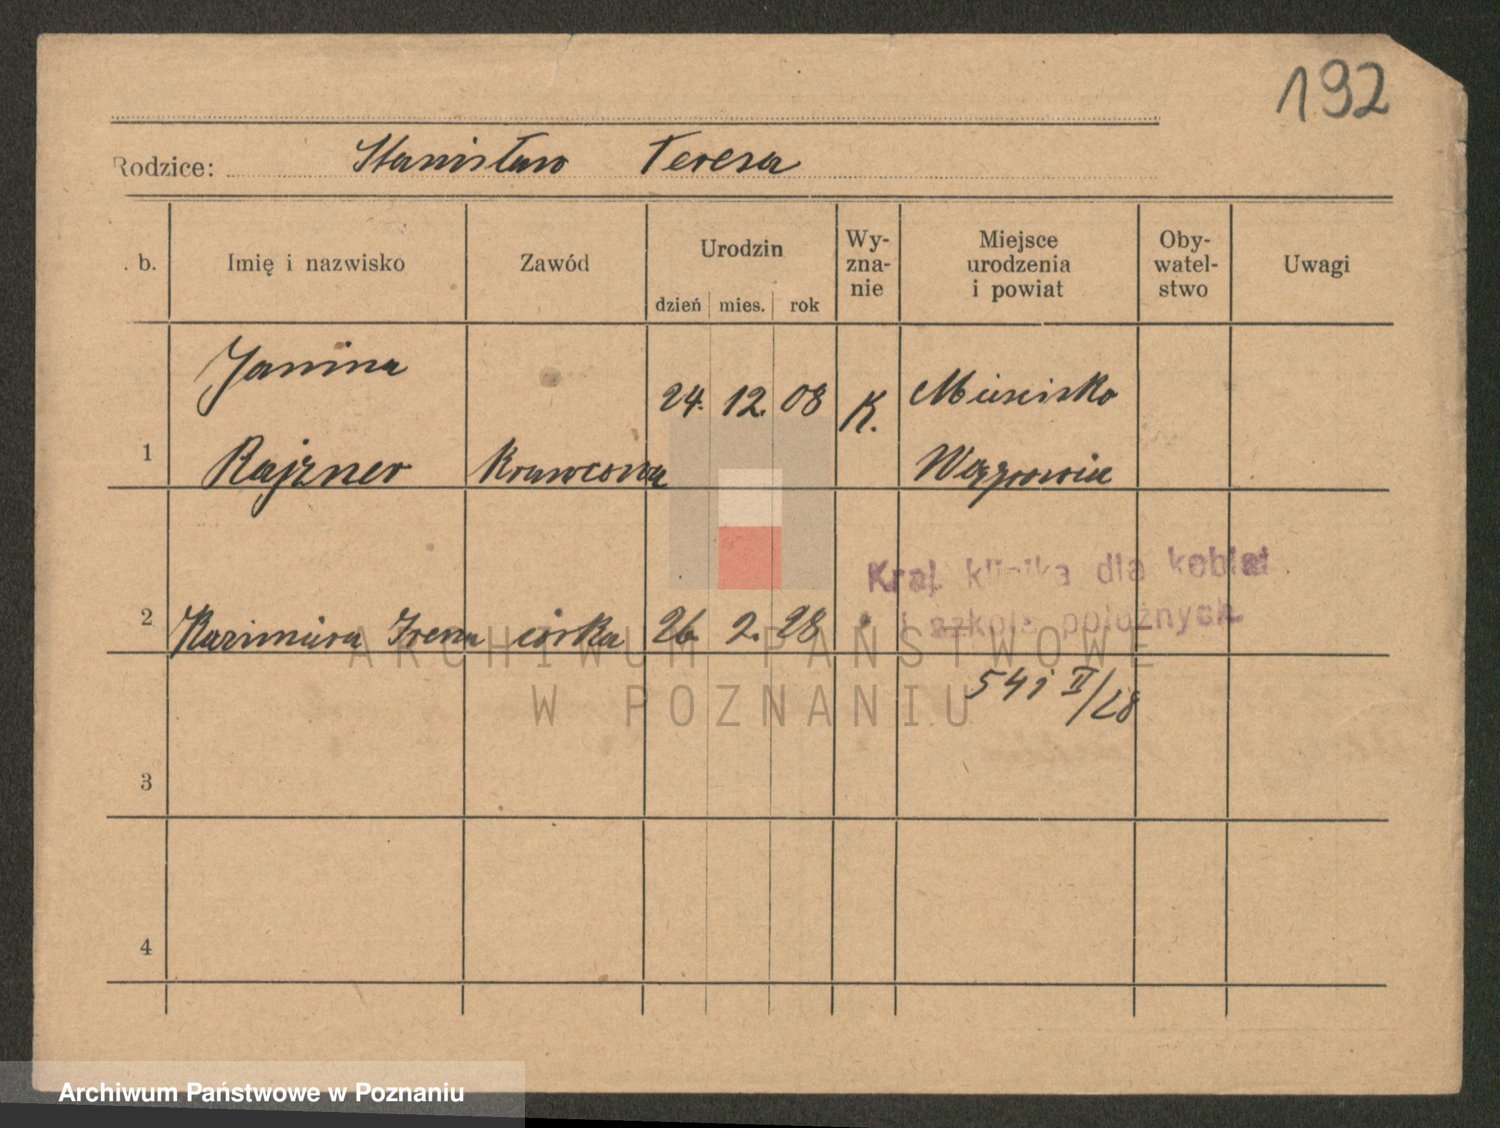 192
Rodzice: Stanisław Teresa
. b. Imię i nazwisko Zawód Urodzin dzień mies. rok Wy-zna-nie Miejsce urodzenia i powiat Oby-watel-stwo Uwagi
Janina 24. 12. 08 K. Mieścisko
1 Rajzner Krawcowa Wągrowiec
Kraj. klinika dla kobiet
2 Kazimiera Irena córka 26. 2. 28 i szkole położnych.
ARCHIWUM PAŃSTWOWE
541 II/28
W POZNANIU
3
4
Archiwum Państwowe w Poznaniu